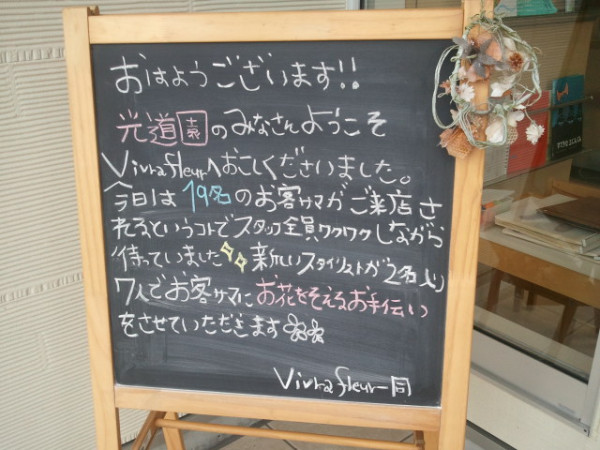 おはようございます!!
光道園のみなさんようこそ
Vivra fleurへおこしくださいました。
今日は19名のお客サマがご来店さ
れるというコトでスタッフ全員ワクワクしながら
待っていました 新しいスタイリストが2名入り
7人でお客サマにお花をそえるお手伝い
をさせていただきます
Vivra fleur一同